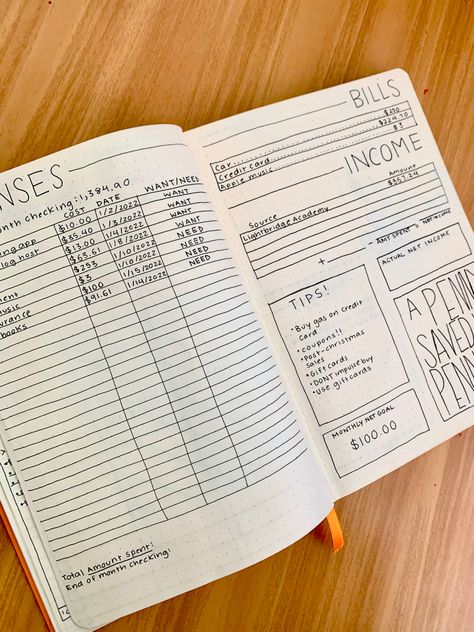 NSES
onth checking: 1,384.90
COST DATE WANT/NEED
ing app $10.00 1/2/2022 WANT
log host $35.40 1/3/2022 WANT
$13.00 1/4/2022 WANT
$63.61 1/8/2022 WANT
ent $253 1/10/2022 NEED
usic $3 1/10/2022 NEED
urance $100 1/15/2022 NEED
books $91.61 1/14/2022 NEED
Total Amount spent:
End of month checking:
BILLS
Car $250
Credit card $224.70
Apple music $3
INCOME
Source Amount
Lightbridge Academy $357.24
+ - AMT SPENT = NET INCOME
TIPS!
• Buy gas on credit
card
• coupons!!
• Post-christmas
sales
• Gift cards
• DONT impulse buy
• Use gift cards
ACTUAL NET INCOME
A PENN
SAVED
PENN
MONTHLY NET GOAL
$100.00